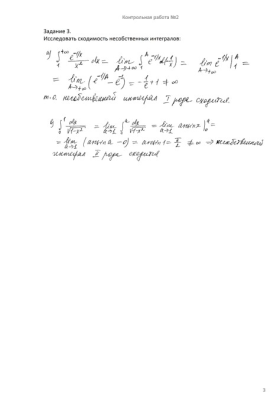 Контрольная работа №2
Задание 3.
Исследовать сходимость несобственных интегралов:
a) ∫₁^{+∞} e^{-1/x}/x² dx = lim_{A→+∞} ∫₁^A e^{-1/x} d(-1/x) = lim_{A→+∞} e^{-1/x} |₁^A =
= lim_{A→+∞} (e^{-1/A} - e^{-1}) = -1/e + 1 ≠ ∞
т.о. несобственный интеграл I рода сходится
b) ∫₀^1 dx/√(1-x²) = lim_{a→1} ∫₀^a dx/√(1-x²) = lim_{a→1} arcsin x |₀^a =
= lim_{a→1} (arcsin a - 0) = arcsin 1 = π/2 ≠ ∞ ⇒ несобственный
интеграл II рода сходится
3